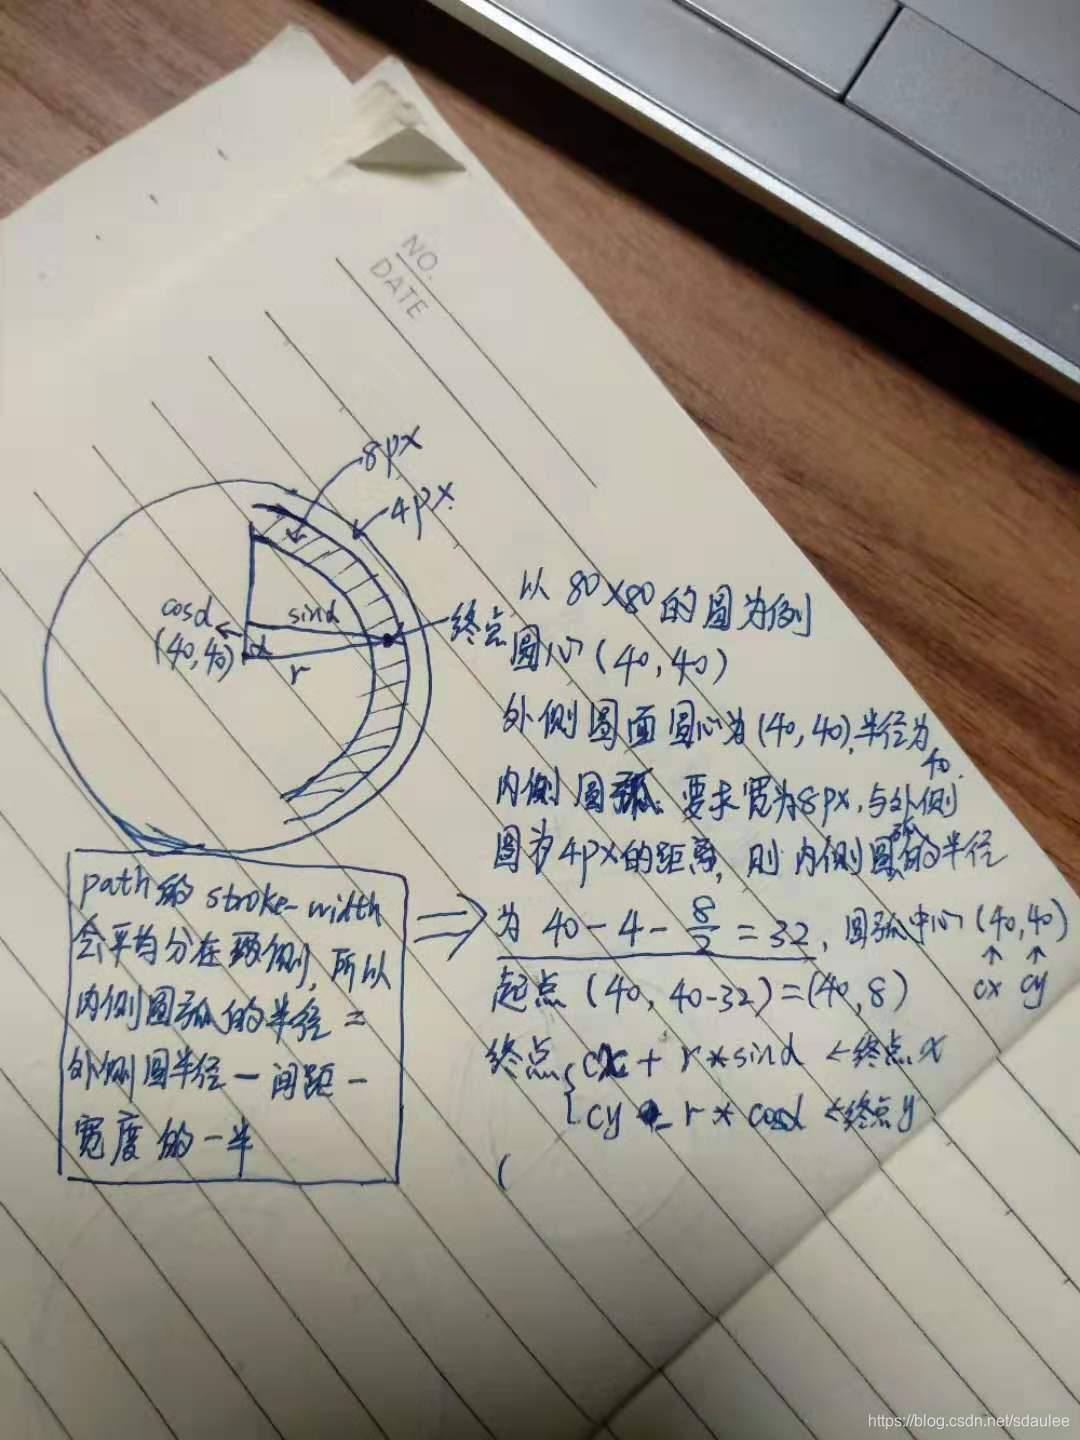 NO.
DATE
8px
4px
cosα
sinα
(40,40)
α
r
终点
以 80×80 的圆为例
圆心 (40,40)
外侧圆面 圆心为 (40,40), 半径为
40.
内侧圆弧: 要求宽为8px, 与外侧
圆有 4px的距离, 则内侧圆弧的半径
为 40 - 4 - 8/2 = 32, 圆弧中心 (40,40)
↑ ↑
cx cy
起点 (40, 40-32)=(40,8)
终点 { cx + r*sinα ←终点x
cy - r * cosα ←终点y
(
path的 stroke-width
会平均分在两侧, 所以
内侧圆弧的半径 =
外侧圆半径 - 间距 -
宽度的一半
https://blog.csdn.net/sdaulee